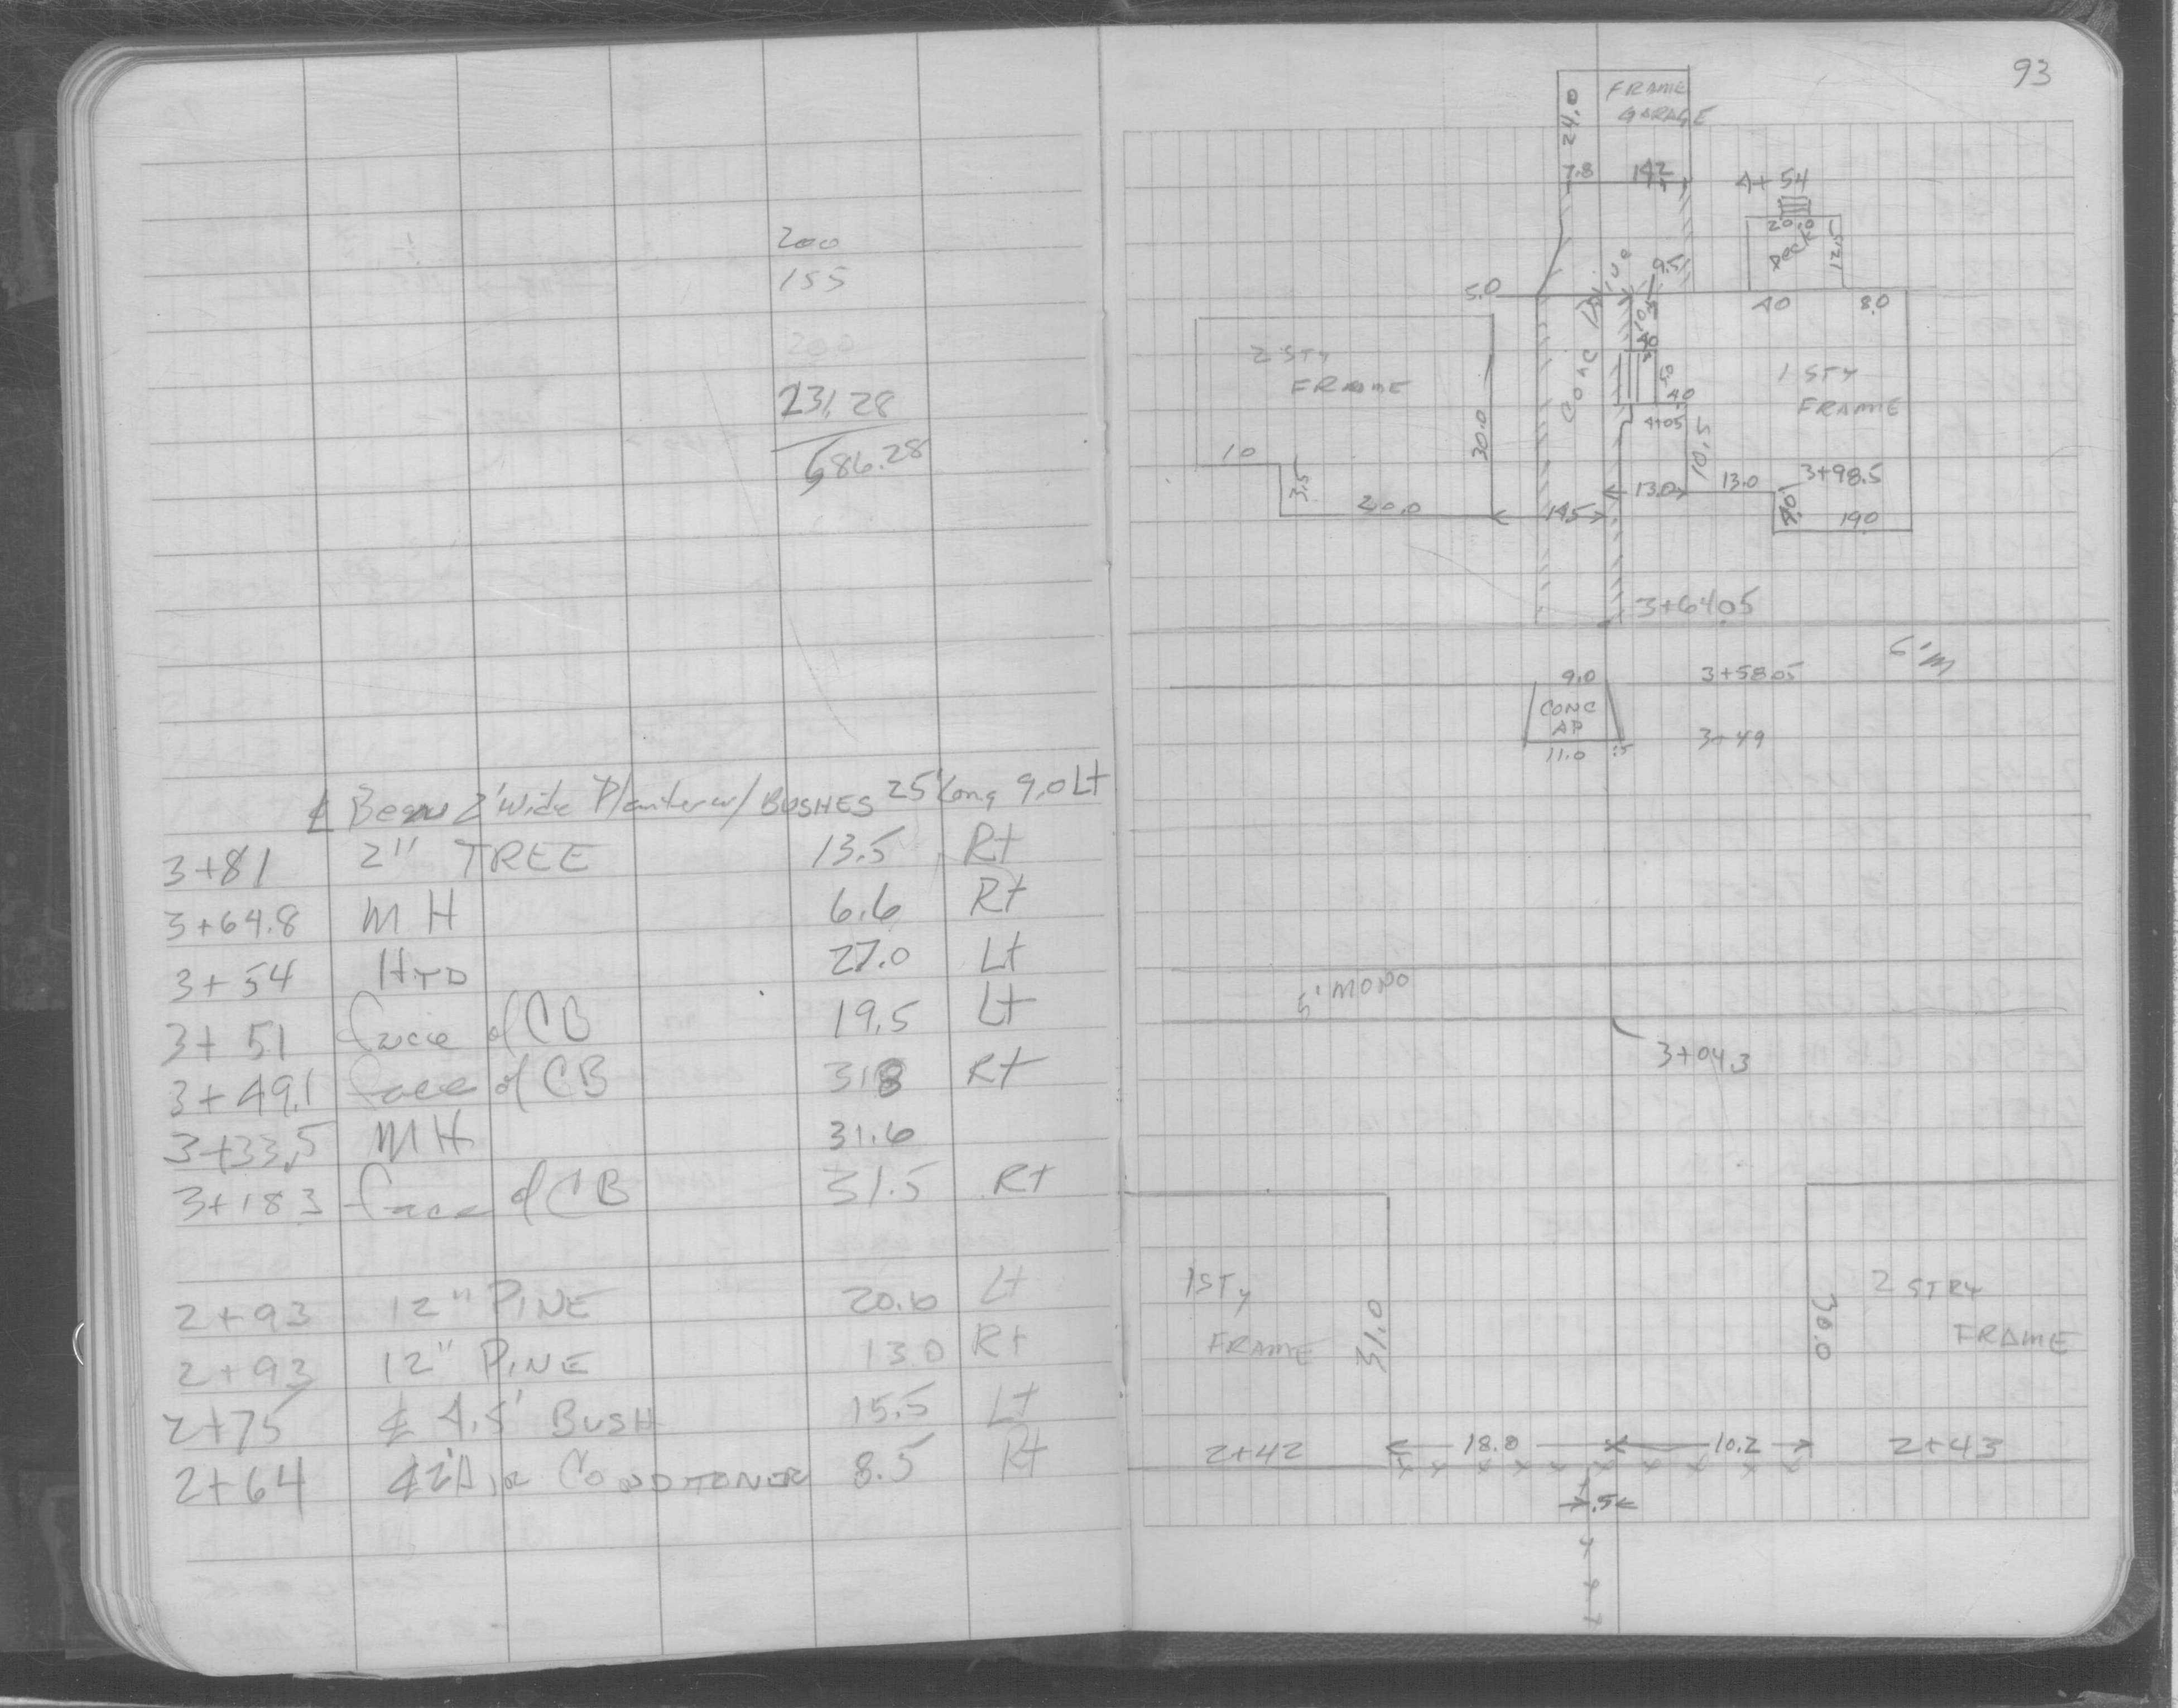 200
155
200
231.28
586.28
℄ Begin 2' Wide Planter w/ BUSHES 25' Long 9.0 Lt
3+81 2" TREE 13.5 Rt
3+64.8 MH 6.6 Rt
3+54 HYD 27.0 Lt
3+51 face of CB 19.5 Lt
3+49.1 face of CB 31.8 Rt
3+33.5 MH 31.6
3+18.3 face of CB 31.5 Rt
2+93 12" PINE 20.6 Lt
2+93 12" PINE 13.0 Rt
2+75 ℄ 4.5' BUSH 15.5 Lt
2+64 ℄ 2' AIR CONDITONER 8.5 Rt
93
FRAME
GARAGE
24.0
7.8 14.2
4+54
20.0
DECK
12.5
5.0
9.5
40 8.0
CONC DRIVE
10.5
4.0
5.0
4.0
4+05
2 STY
FRAME
30.0
1 STY
FRAME
10
3.5
20.0
14.5
13.0
10.5
13.0
3+98.5
4.0
19.0
3+64.05
6' M
9.0
3+58.05
CONC
AP
11.0 .5
3+49
5' MONO
3+04.3
1 STY
FRAME
31.0
2 STRY
FRAME
30.0
2+42
18.8
10.2
2+43
.5